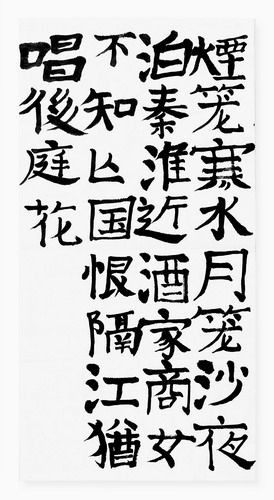 煙笼寒水月笼沙夜
泊秦淮近酒家商女
不知亾国恨隔江猶
唱後庭花